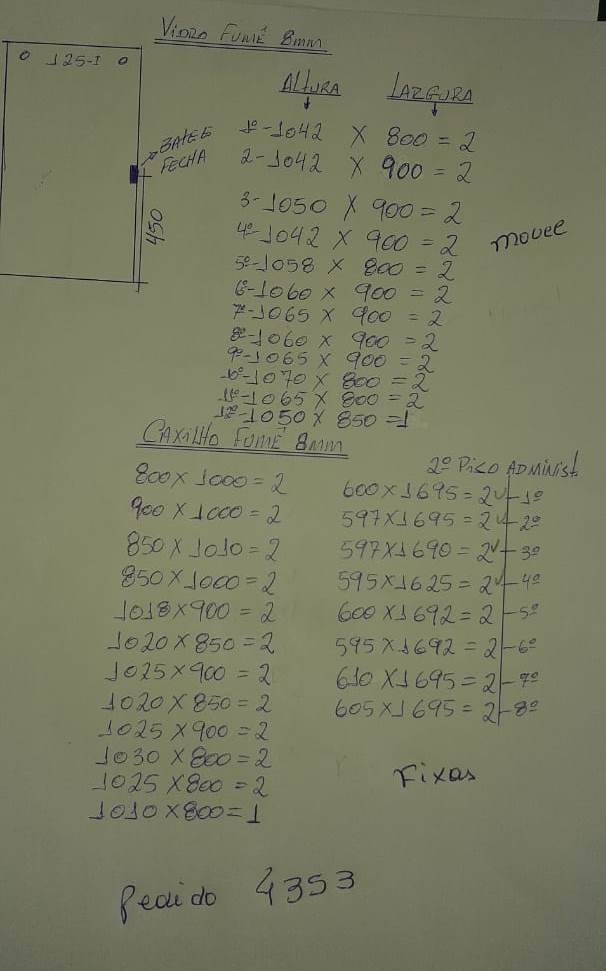 VIDRO FUMÊ 8mm
125-I
BATE E
FECHA
450
ALTURA LARGURA
1º-1042 X 800 = 2
2-1042 X 900 = 2
3-1050 X 900 = 2
4º-1042 X 900 = 2
5º-1058 X 800 = 2
6º-1060 X 900 = 2
7º-1065 X 900 = 2
8º-1060 X 900 = 2
9º-1065 X 900 = 2
10º-1070 X 800 = 2
11º-1065 X 800 = 2
12º-1050 X 850 = 1
CAXILHO FUMÊ 8mm
800 X 1000 = 2
900 X 1000 = 2
850 X 1010 = 2
850 X 1000 = 2
1018 X 900 = 2
1020 X 850 = 2
1025 X 900 = 2
1020 X 850 = 2
1025 X 900 = 2
1030 X 800 = 2
1025 X 800 = 2
1010 X 800 = 1
2º PISO ADMINIST.
600 X 1695 = 2 ✓-1º
597 X 1695 = 2 ✓-2º
597 X 1690 = 2 ✓-3º
595 X 1625 = 2 ✓-4º
600 X 1692 = 2 -5º
595 X 1692 = 2 -6º
610 X 1695 = 2 -7º
605 X 1695 = 2 -8º
Fixas
Pedido 4353